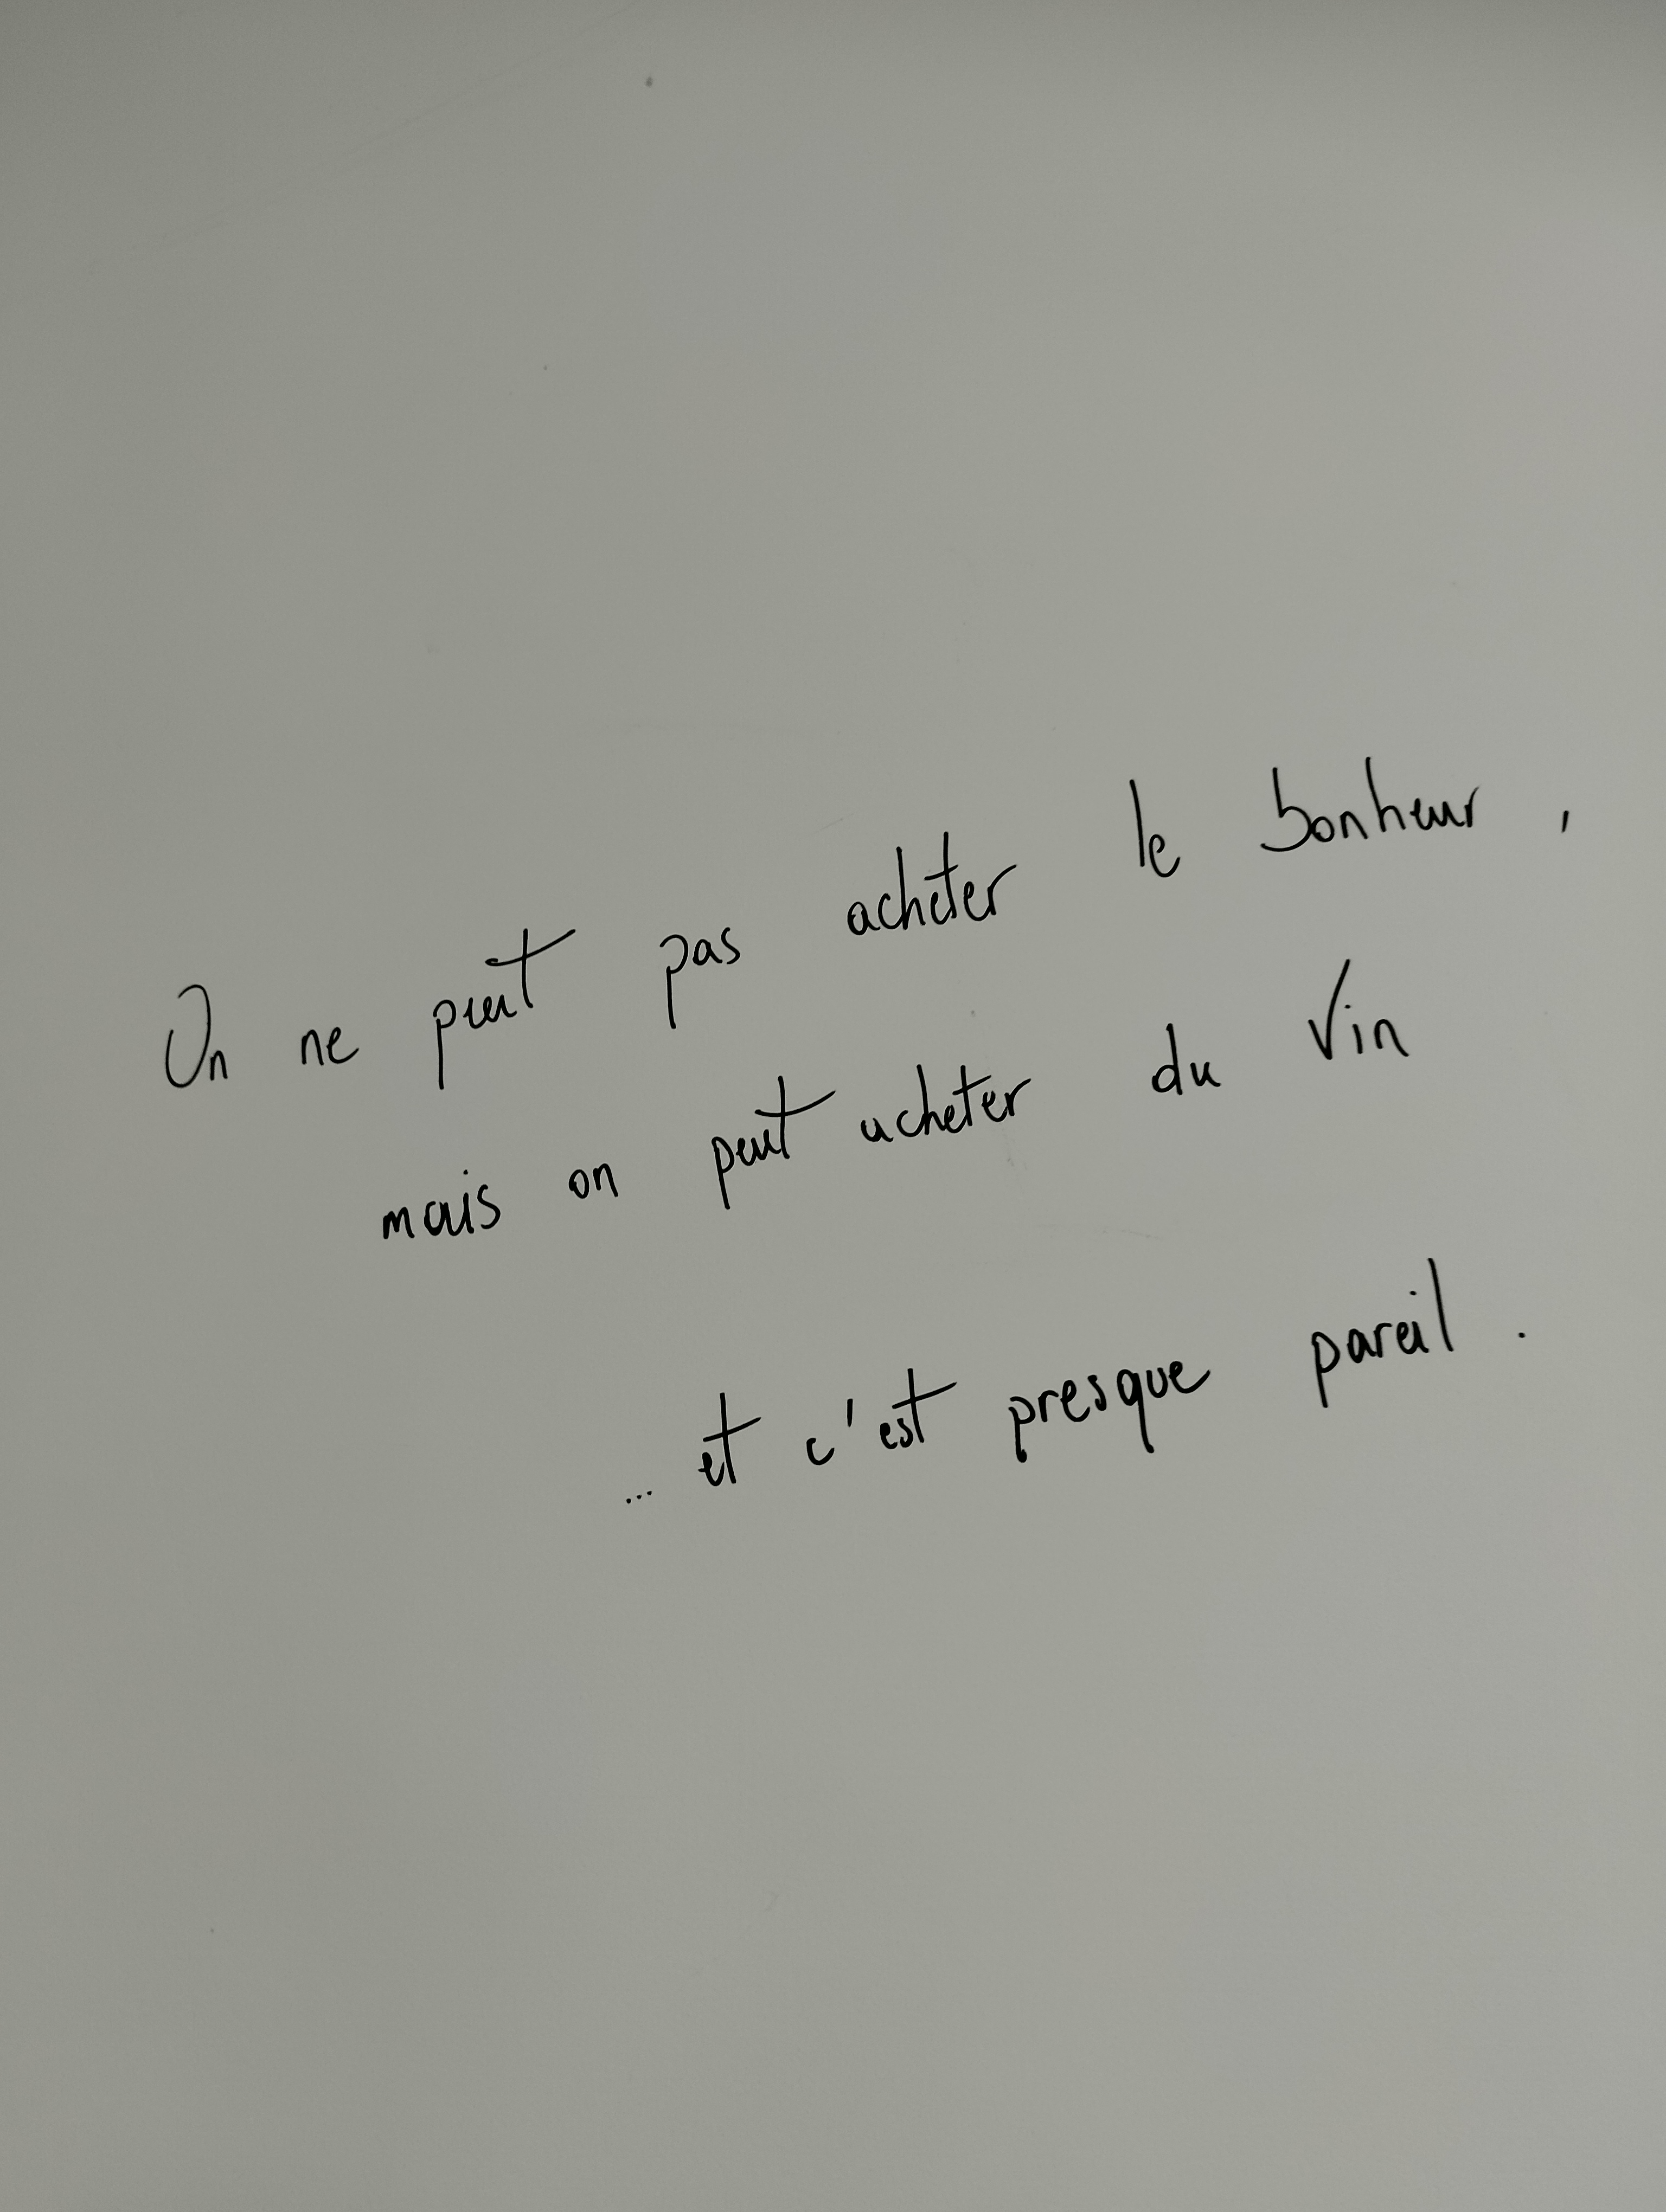 On ne peut pas acheter le bonheur,
mais on peut acheter du vin
... et c'est presque pareil.